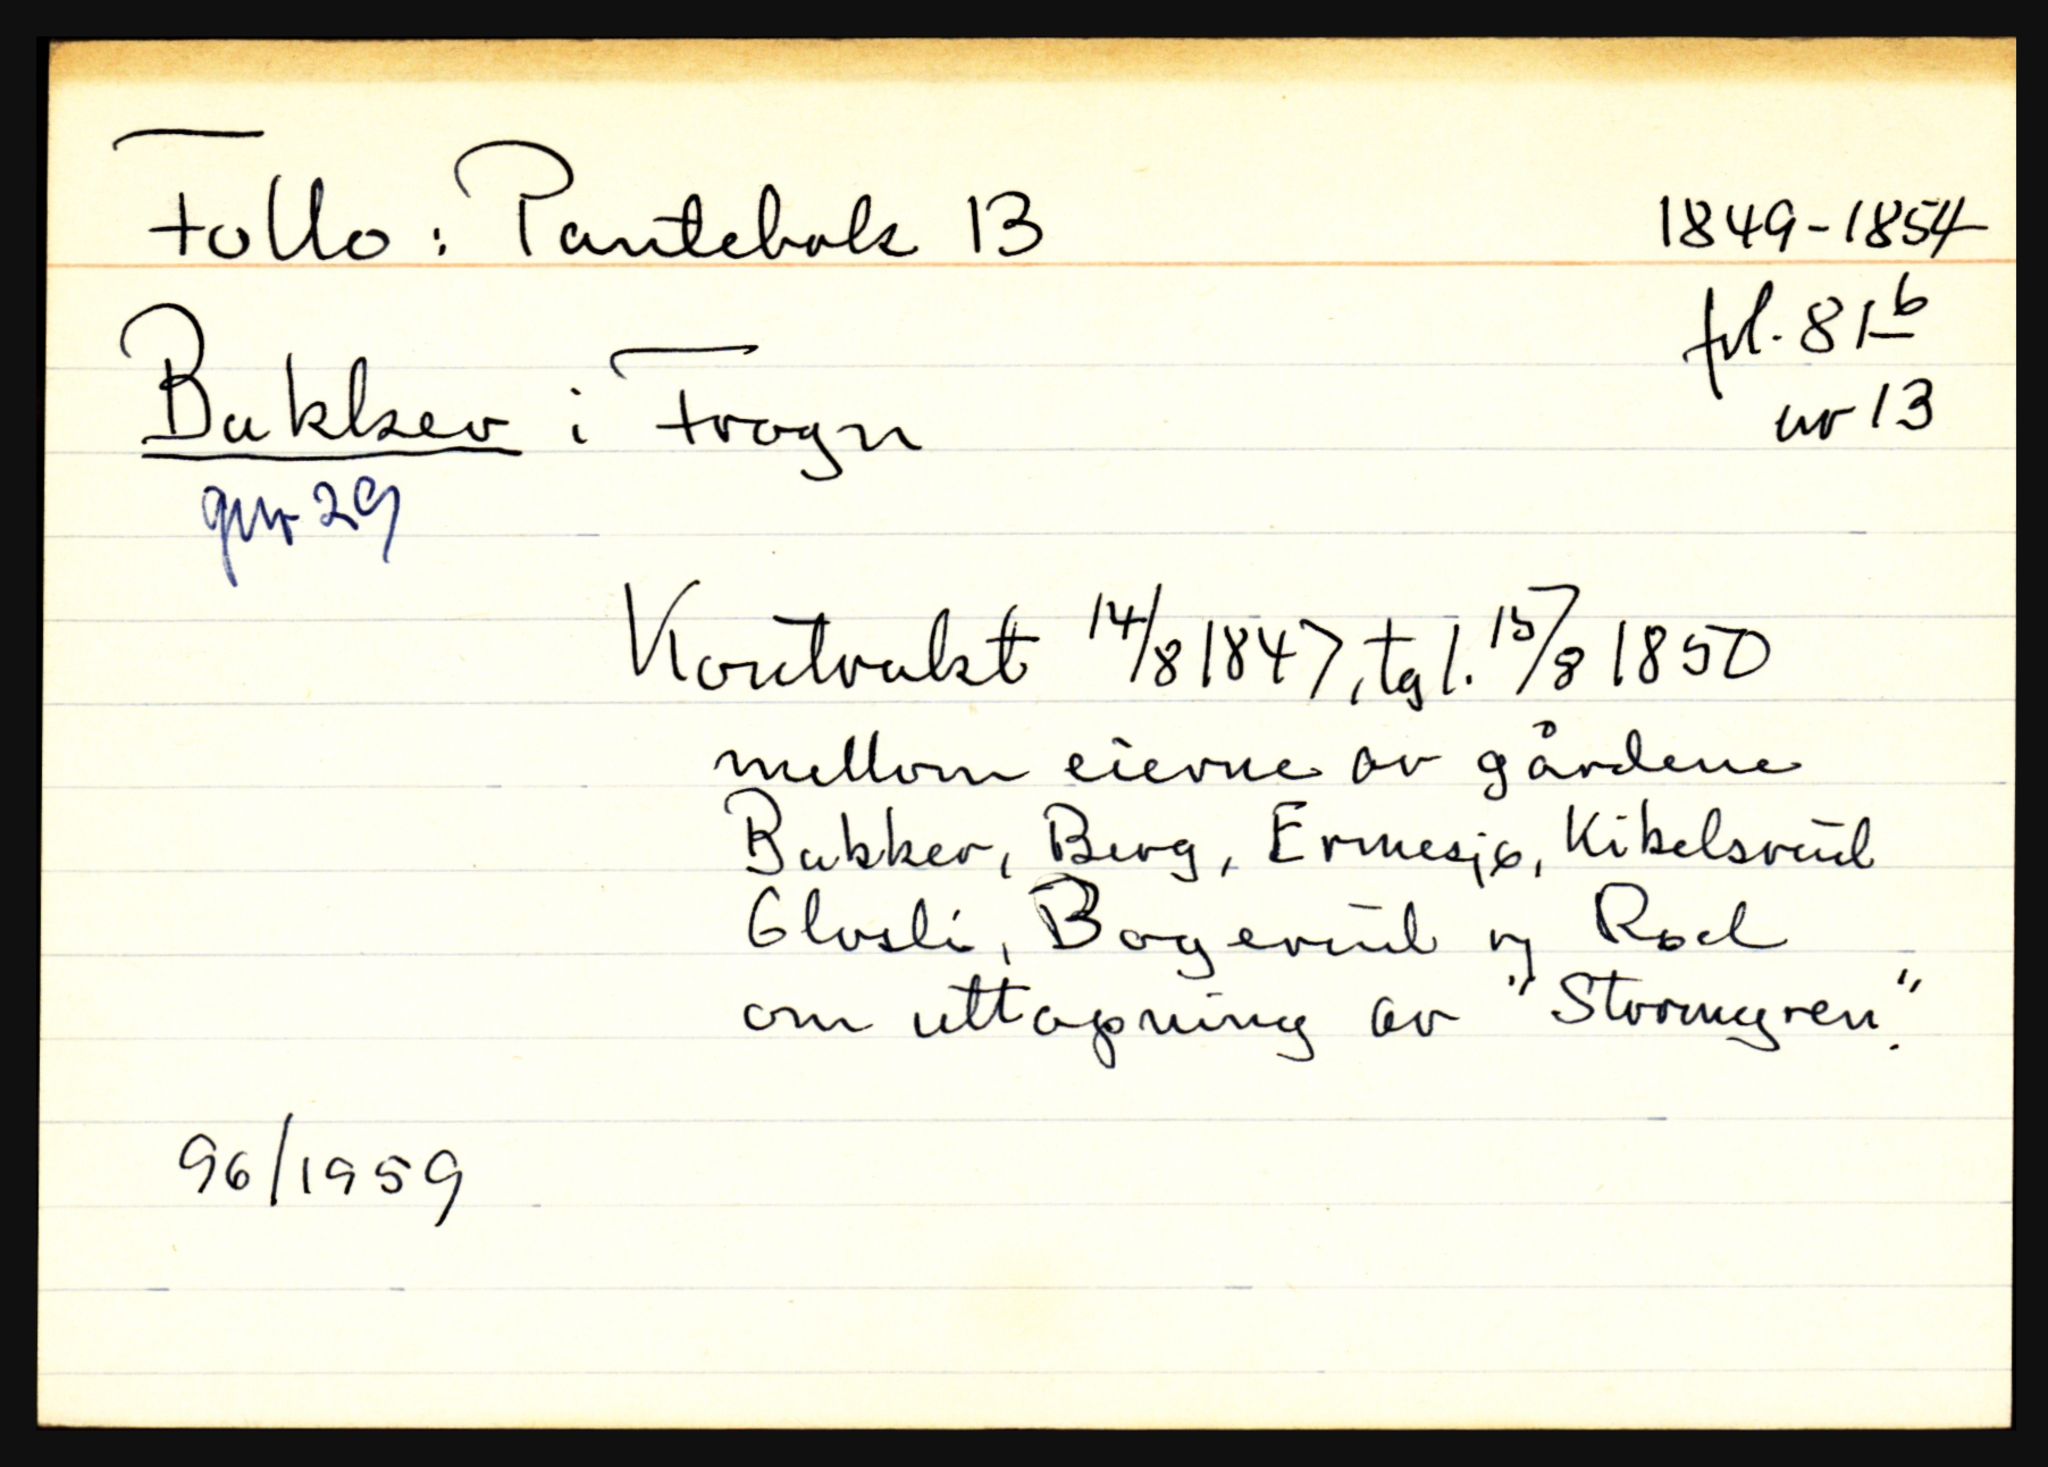 Follo: Pantebok 13 1849-1854
fol. 81b
nr 13
Bakker i Frogn
gnr 29
Kontrakt 14/8 1847, tgl. 15/8 1850
mellom eierne av gårdene
Bakker, Berg, Ermesjø, Kikelsrud
Glosli, Bogerud og Rød
om uttapning av "Stormyren".
96/1959